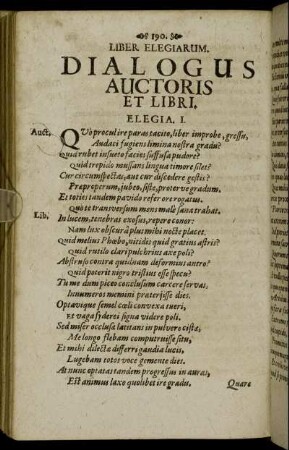 190.
LIBER ELEGIARUM.
DIALOGUS
AUCTORIS
ET LIBRI,
ELEGIA. I.
Auct. QVò procul ire paras tacito, liber improbe, gressu,
Audaci fugiens limina nostra gradu?
Quid rubet insueto facies suffusa pudore?
Quid trepido mussans lingua timore silet?
Cur circumspectas, aut cur discedere gestis?
Præproperum, jubeo, siste, proterve gradum,
Et toties tandem pavido refer ore rogatus.
Quò te transversum mens malè sana trahat.
Lib. In lucem, tenebras exosus, repere conor:
Nam lux obscurâ plus mihi nocte placet.
Quid melius Phœbo, nitidis quid gratius astris?
Quid rutilo clarius pulchrius axe poli?
Abstruso contra quidnam deformius antro?
Quid poterit nigro tristius esse specu?
Tu me dum piceo conclusum carcere servas,
Innumeros memini præteriisse dies.
Optavique semel cœli convexa tueri,
Et vaga syderei signa videre poli.
Sed miser occlusæ latitans in pulvere cistæ,
Me longo flebam computruisse situ,
Et mihi dilectæ differri gaudia lucis,
Lugebam totos voce gemente dies.
At nunc optatas tandem progressus in auras,
Est animus laxo quolibet ire gradu.
Quare